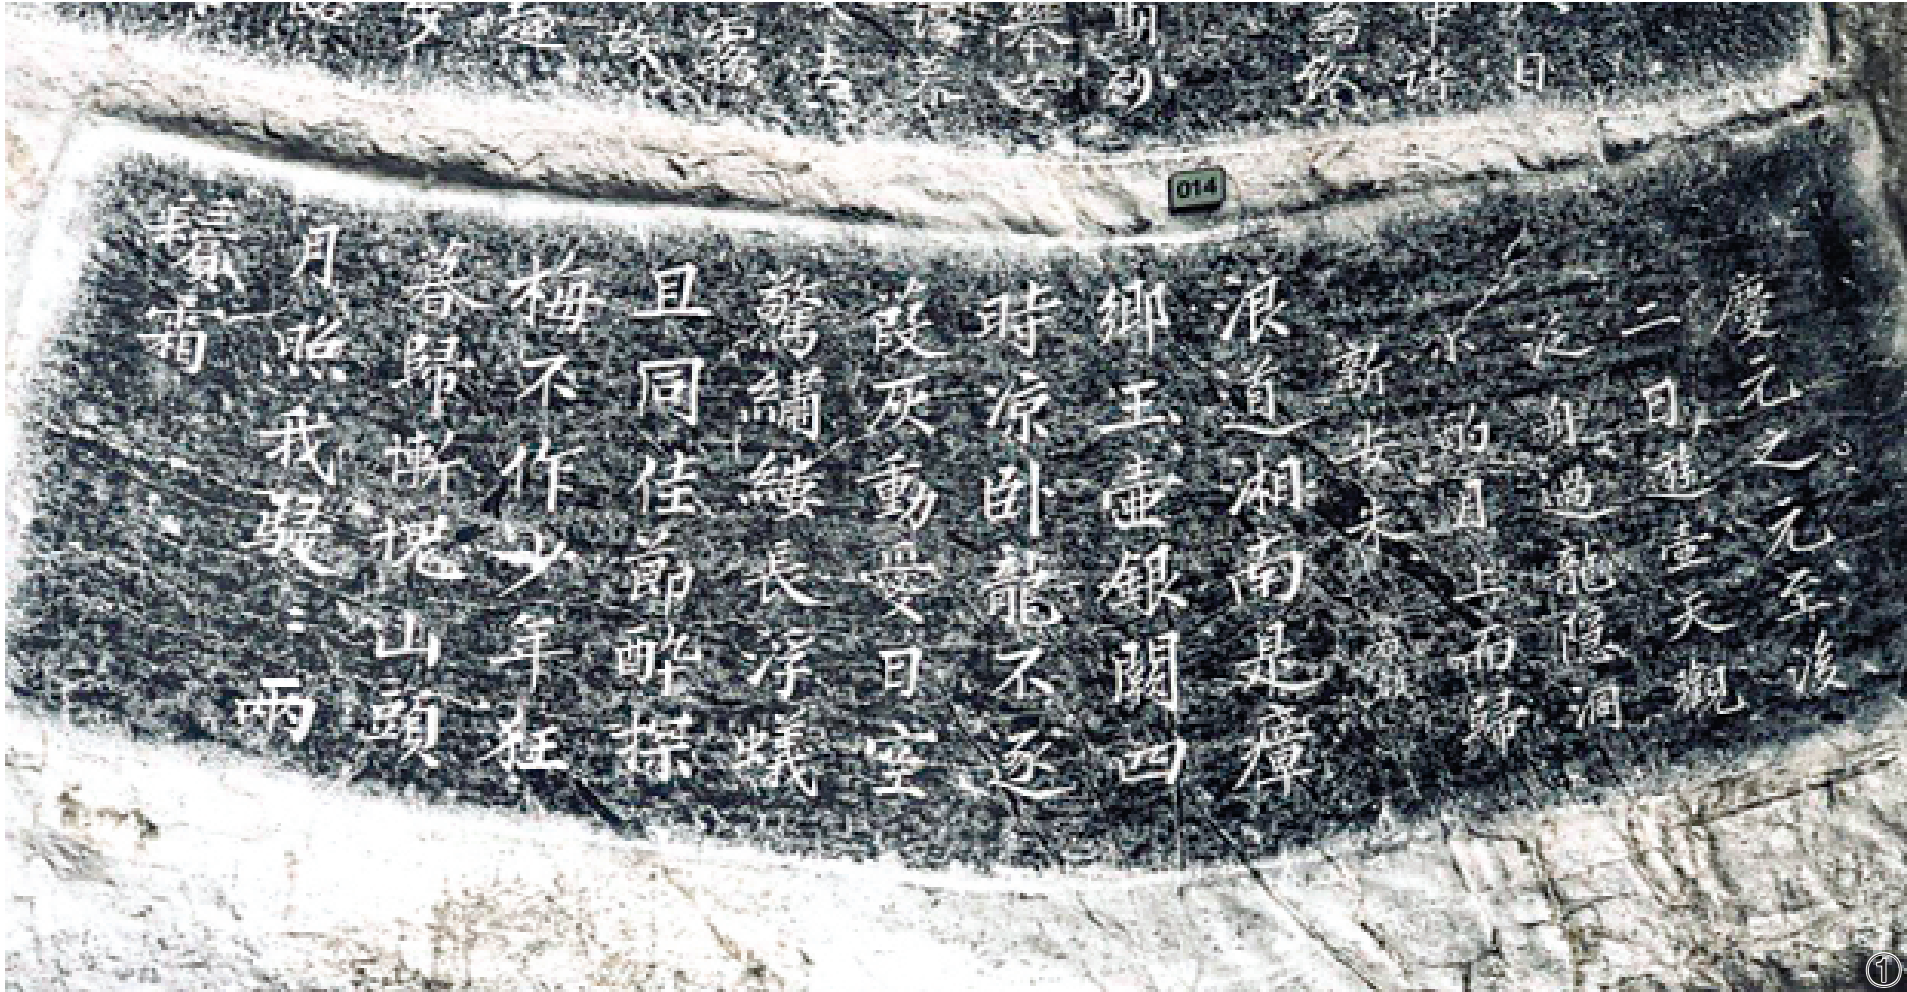 日
詩
014
慶元之元至後
二日遊壺天觀
泛舟過龍隱洞
小酌月上而歸
新安朱
浪道湘南是瘴
鄉玉壺銀闕四
時凉卧龍不逐
葭灰動愛日空
驚繡縷長浮蟻
且同佳節醉探
梅不作少年狂
暮歸慚愧山頭
月照我鬖〻兩
鬢霜
①